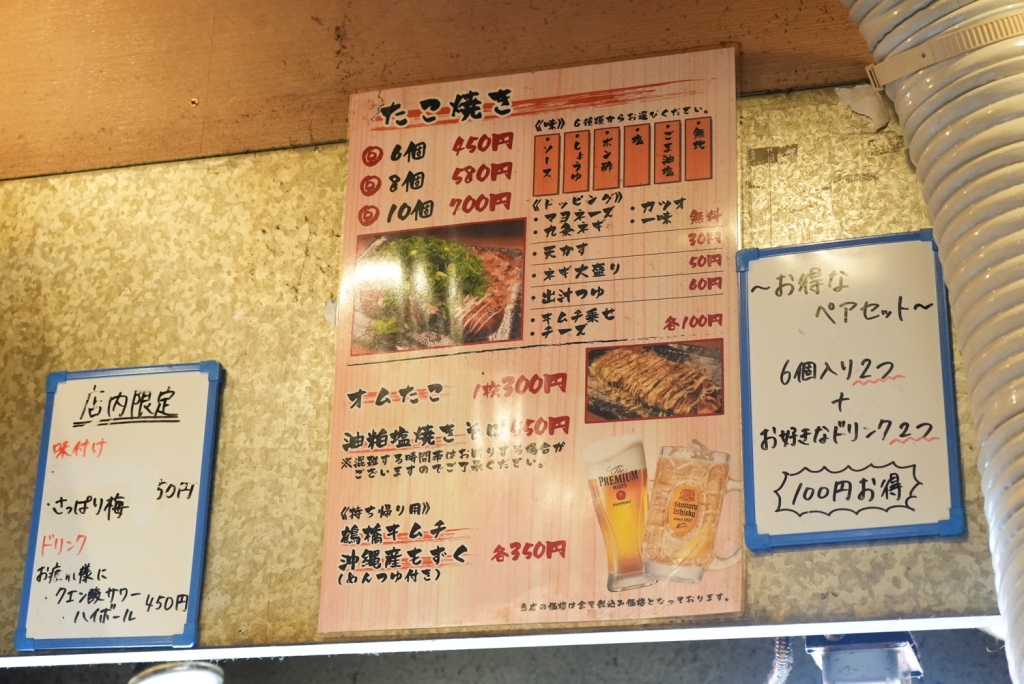 たこ焼き
6個 450円
8個 580円
10個 700円
《味》 6種類からお選びください。
・ソース
・しょうゆ
・ポン酢
・塩
・ごま油塩
・無地
《トッピング》
・マヨネーズ ・カツオ
・九条ネギ ・一味 無料
・天かす 30円
・ネギ大盛り 50円
・出汁つゆ 60円
・キムチ乗せ
・チーズ 各100円
オムたこ 1枚300円
油粕塩焼きそば 50円
※混雑する時間帯はお断りする場合が
ございますのでご了承ください。
《持ち帰り用》
鶴橋キムチ
沖縄産もずく 各350円
(めんつゆ付き)
The
PREMIUM
MALT'S
Suntory
Whisky
当店の価格は全て税込み価格となっております。
店内限定
味付け
・さっぱり梅 50円
ドリンク
お疲れ様に
・クエン酸サワー
・ハイボール 450円
〜お得な
ペアセット〜
6個入り2つ
+
お好きなドリンク2つ
100円お得